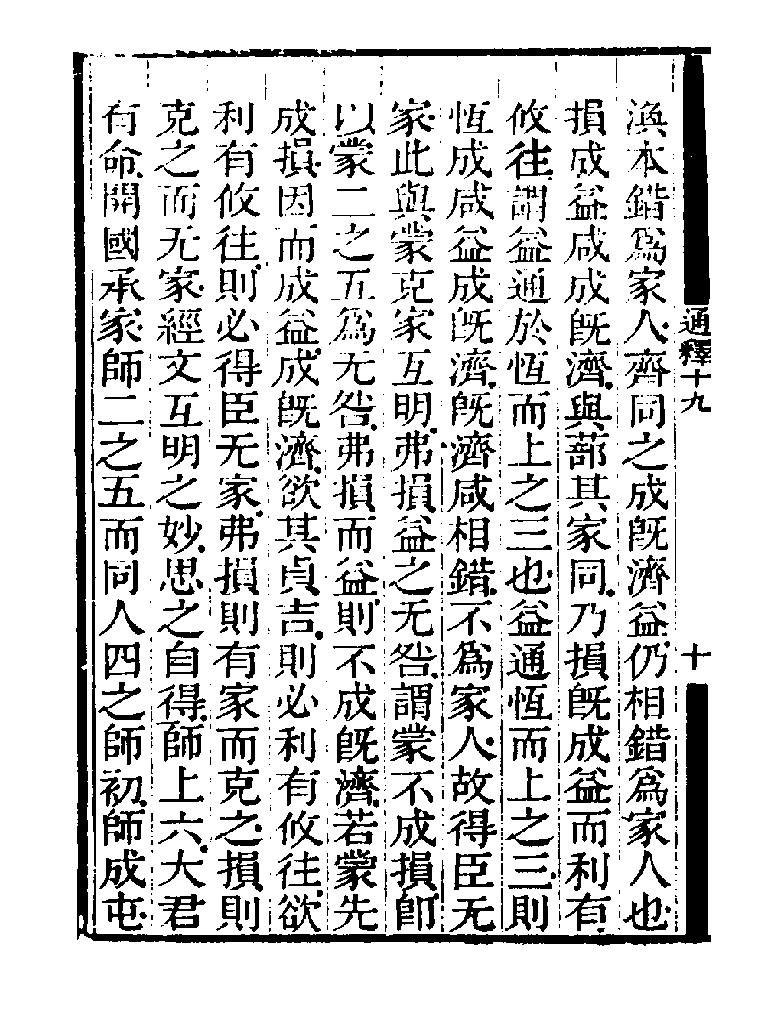 渙本錯為家人齊同之成既濟益仍相錯為家人也
損成益咸成既濟與蔀其家同乃損既成益而利有
攸往謂益通於恆而上之三也益通恆而上之三則
恆成咸益成既濟既濟咸相錯不為家人故得臣无
家此與蒙克家互明弗損益之无咎謂蒙不成損即
以蒙二之五為无咎弗損而益則不成既濟若蒙先
成損因而成益成既濟欲其貞吉則必利有攸往欲
利有攸往則必得臣无家弗損則有家而克之損則
克之而无家經文互明之妙思之自得師上六大君
有命開國承家師二之五而同人四之師初師成屯
通釋十九
十